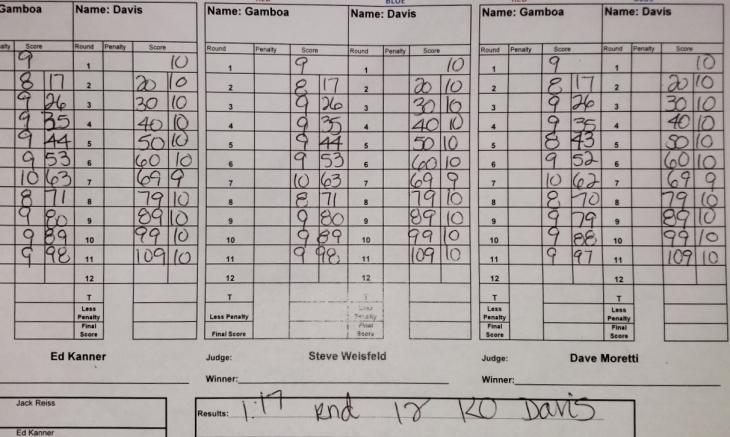 RED BLUE RED BLUE
Gamboa Name: Davis Name: Gamboa Name: Davis Name: Gamboa Name: Davis
alty Score Round Penalty Score Round Penalty Score Round Penalty Score Round Penalty Score Round Penalty Score
9 1 10 1 9 1 10 1 9 1 10
8 17 2 20 10 2 8 17 2 20 10 2 8 17 2 20 10
9 26 3 30 10 3 9 26 3 30 10 3 9 26 3 30 10
9 35 4 40 10 4 9 35 4 40 10 4 9 35 4 40 10
9 44 5 50 10 5 9 44 5 50 10 5 8 43 5 50 10
9 53 6 60 10 6 9 53 6 60 10 6 9 52 6 60 10
10 63 7 69 9 7 10 63 7 69 9 7 10 62 7 69 9
8 71 8 79 10 8 8 71 8 79 10 8 8 70 8 79 10
9 80 9 89 10 9 9 80 9 89 10 9 9 79 9 89 10
9 89 10 99 10 10 9 89 10 99 10 10 9 88 10 99 10
9 98 11 109 10 11 9 98 11 109 10 11 9 97 11 109 10
12 12 12 12 12
T T T T T
Less Penalty Less Penalty Less Penalty Less Penalty Less Penalty
Final Score Final Score Final Score Final Score Final Score
Ed Kanner Judge: Steve Weisfeld Judge: Dave Moretti
Winner: Winner:
Jack Reiss
Results: 1:17 Rnd 12 KO Davis
Ed Kanner